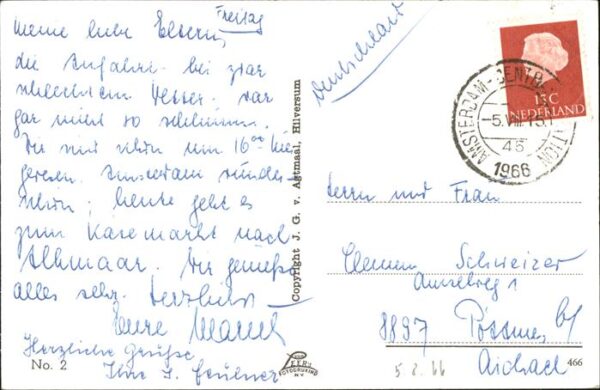 Freitag
Meine liebe Eltern,
die Anfahrt bei zwar
schlechtem Wetter, war
gar nicht so schlimm.
Wir sind schon um 16⁰⁰ hier
gewesen. Amsterdam wunder-
schön; heute geht es
zum Käsemarkt nach
Alkmaar. Wir genießen
alles sehr. Herzlichst
Eure
Herzliche Grüße
Ihre
No. 2
Copyright J. G. v. Agtmaal, Hilversum
Deutschland
15C
NEDERLAND
AMSTERDAM-CENTR STATION
-5.VIII.15
46
1966
Herrn und Frau
Clemens Schweizer
Amselweg 1
8897 Pöttmes b/
Aichach
5 8. 66
FOTOGRUKIND NV
466